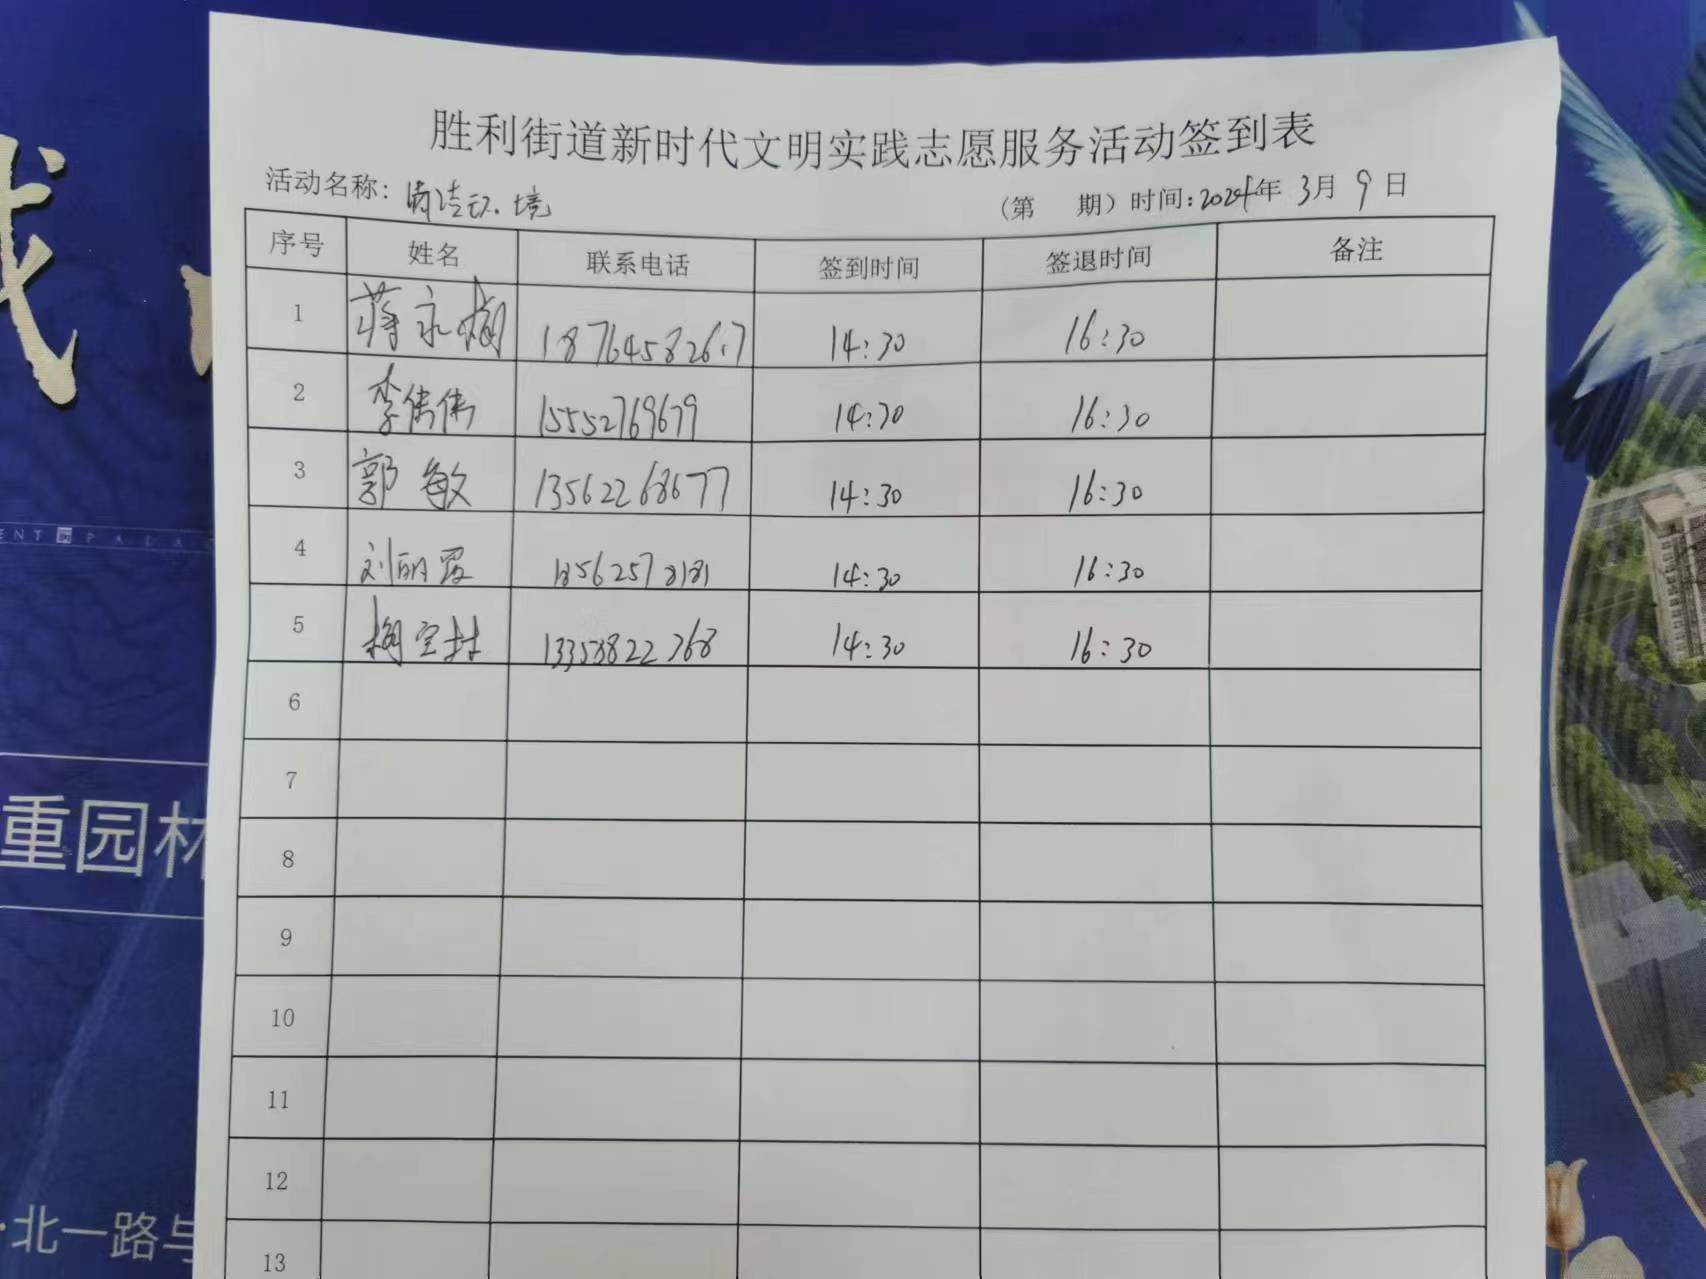 胜利街道新时代文明实践志愿服务活动签到表
活动名称：清洁环境 （第 期）时间：2024年 3月 9日
序号 姓名 联系电话 签到时间 签退时间 备注
1 蒋永梅 18764582617 14:30 16:30
2 李伟伟 15552769679 14:30 16:30
3 郭敏 13562268677 14:30 16:30
4 刘丽霞 18562578181 14:30 16:30
5 14:30 16:30
6
7
8
9
10
11
12
13
ENT PALA
重园林
北一路与